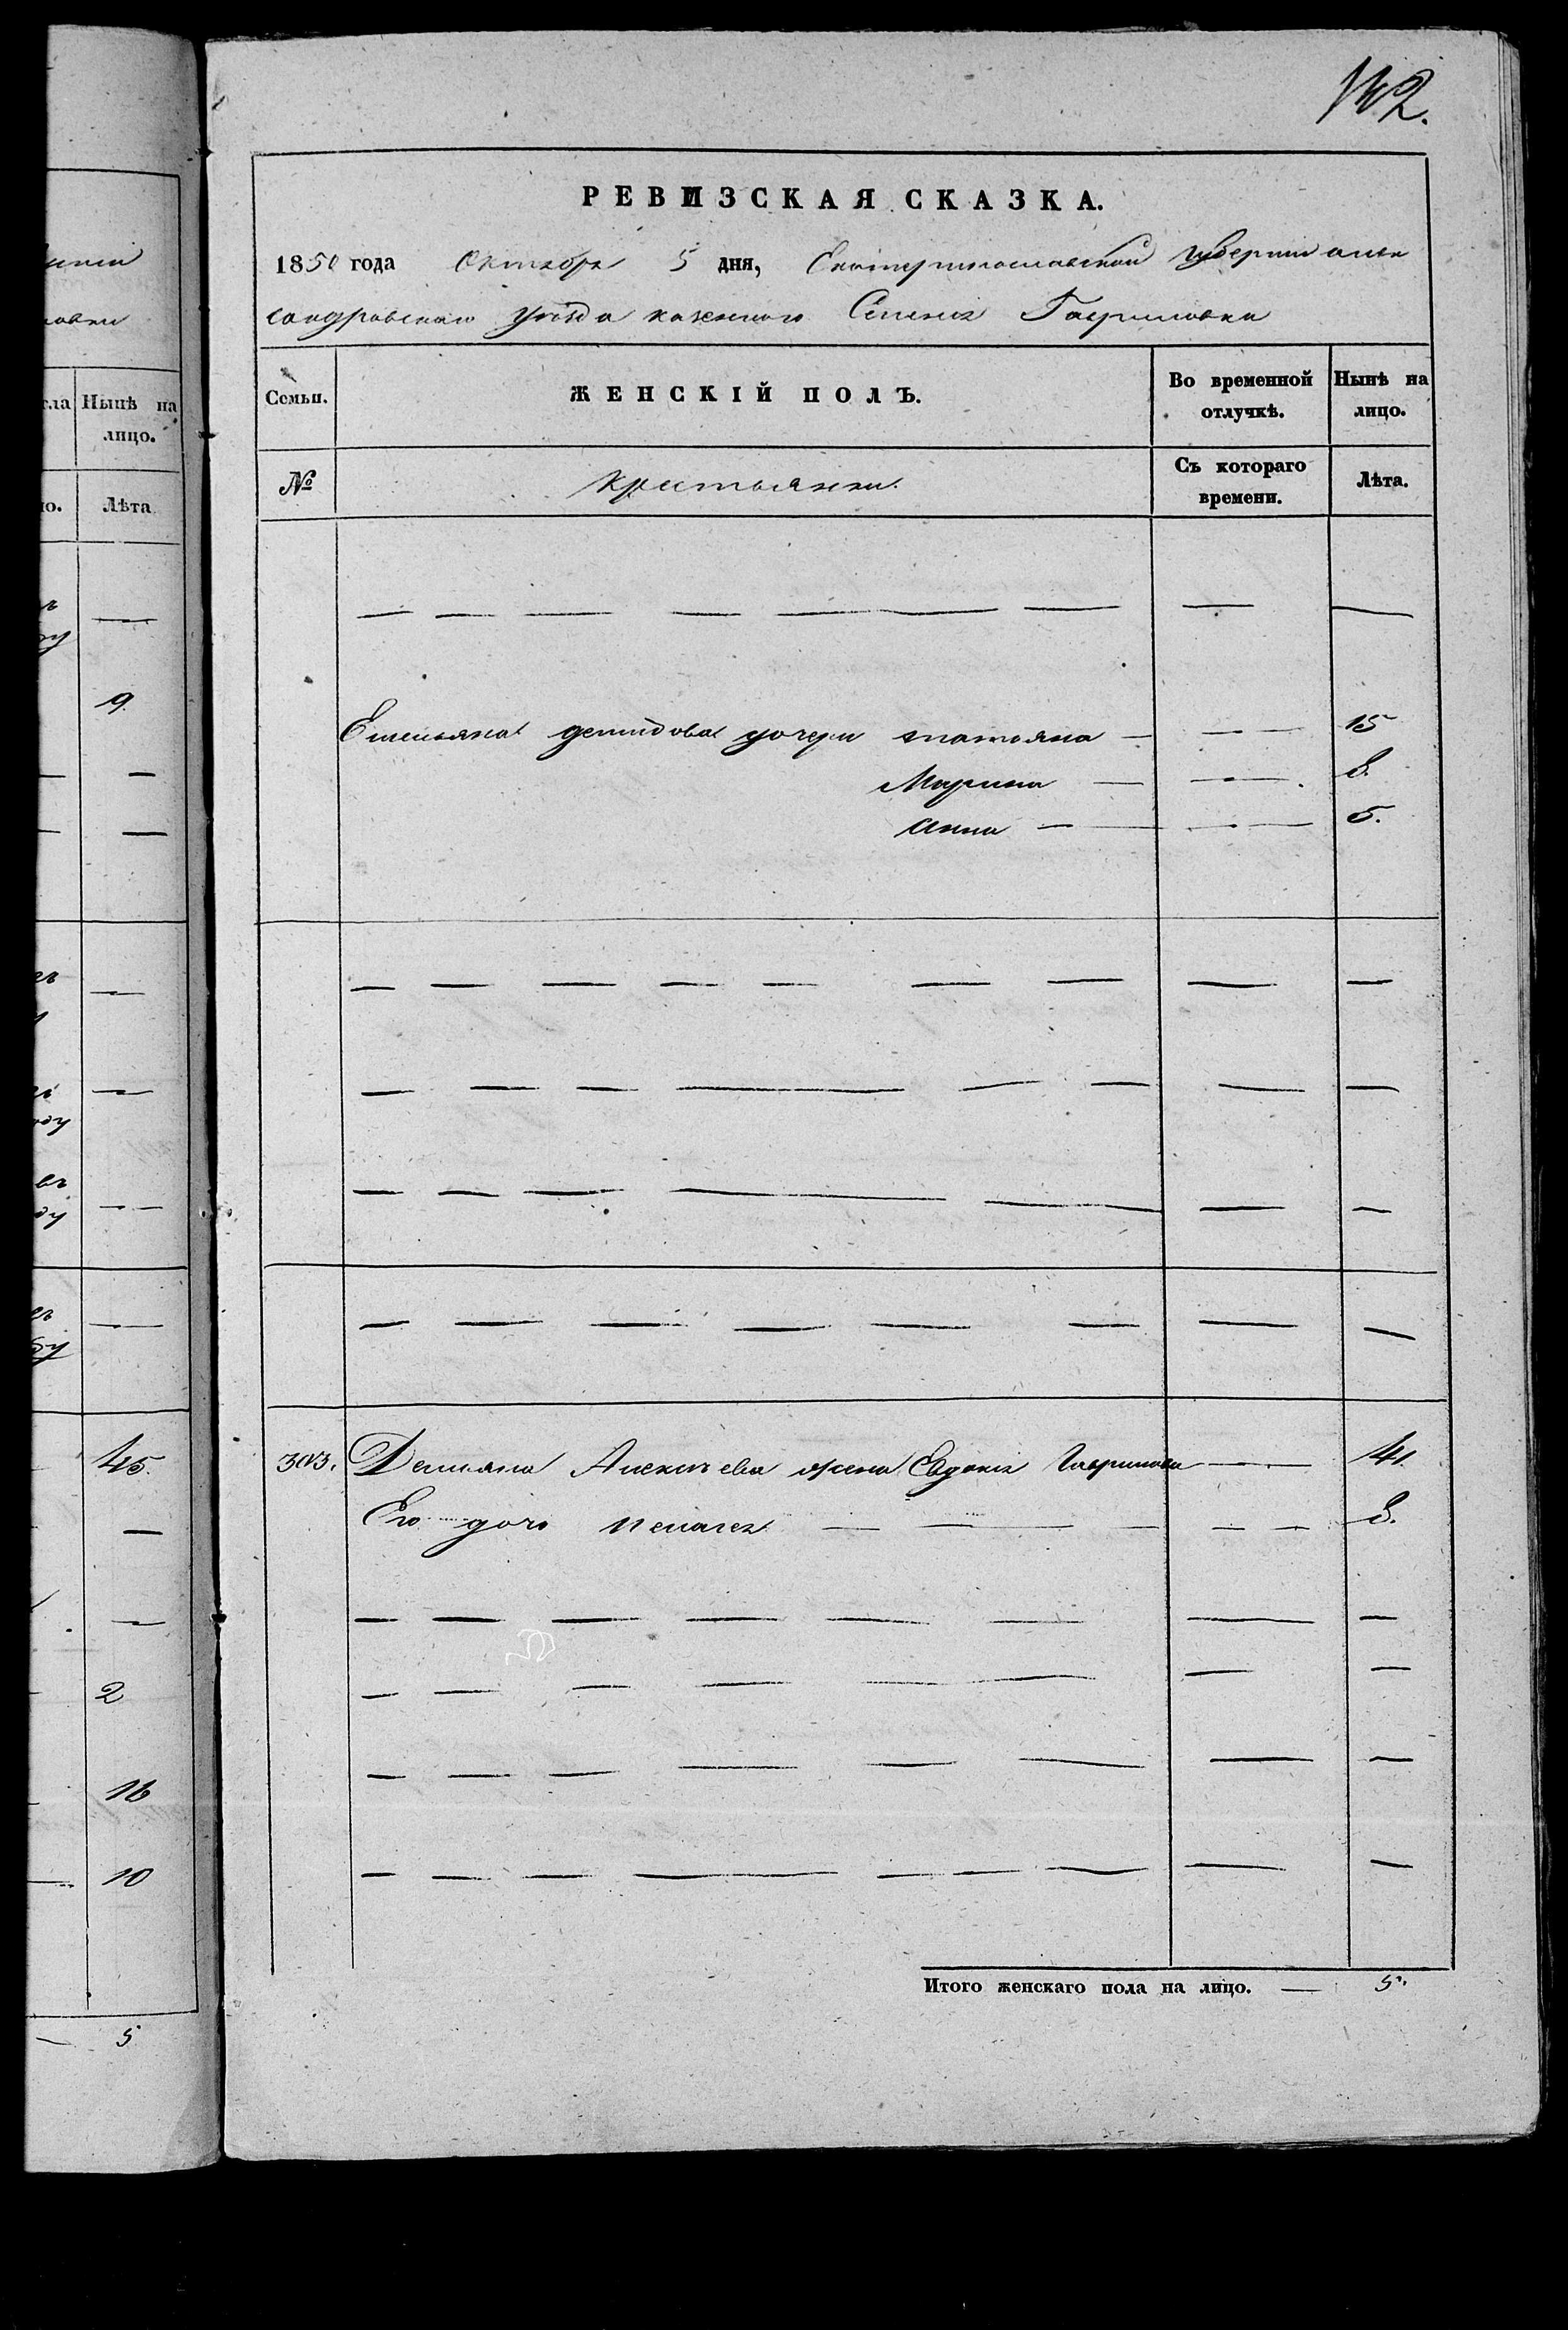 142.
РЕВИЗСКАЯ СКАЗКА.
1850 года Октября 5 дня, Екатеринославской губернии Алек
сандровскаго уѣзда казеннаго Селенія Гавриловки
Семьи.
ЖЕНСКІЙ ПОЛЪ.
Во временной отлучкѣ.
Нынѣ на лицо.
№
Крестьянки.
Съ котораго времени.
Лѣта.
Емельяна Демидова дочери Татьяна — — — 15
Марина — — 8.
Анна — — — 5.
303. Демьяна Алексѣева жена Евдокія Гаврилова — — 41.
Его дочь Пелагея — — — — — 8.
Итого женскаго пола на лицо. — 5.
Нынѣ на
лицо.
Лѣта
9.
45.
2
16
10
5